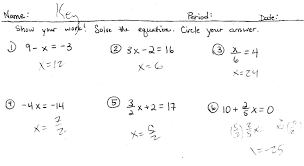 Name: Key Period: Date:
Show your work! Solve the equation. Circle your answer.
① 9 - x = -3 ② 3x - 2 = 16 ③ x/6 = 4
x = 12 x = 6 x = 24
④ -4x = -14 ⑤ 3/2 x + 2 = 17 ⑥ 10 + 2/5 x = 0
x = 7/2
x = -25